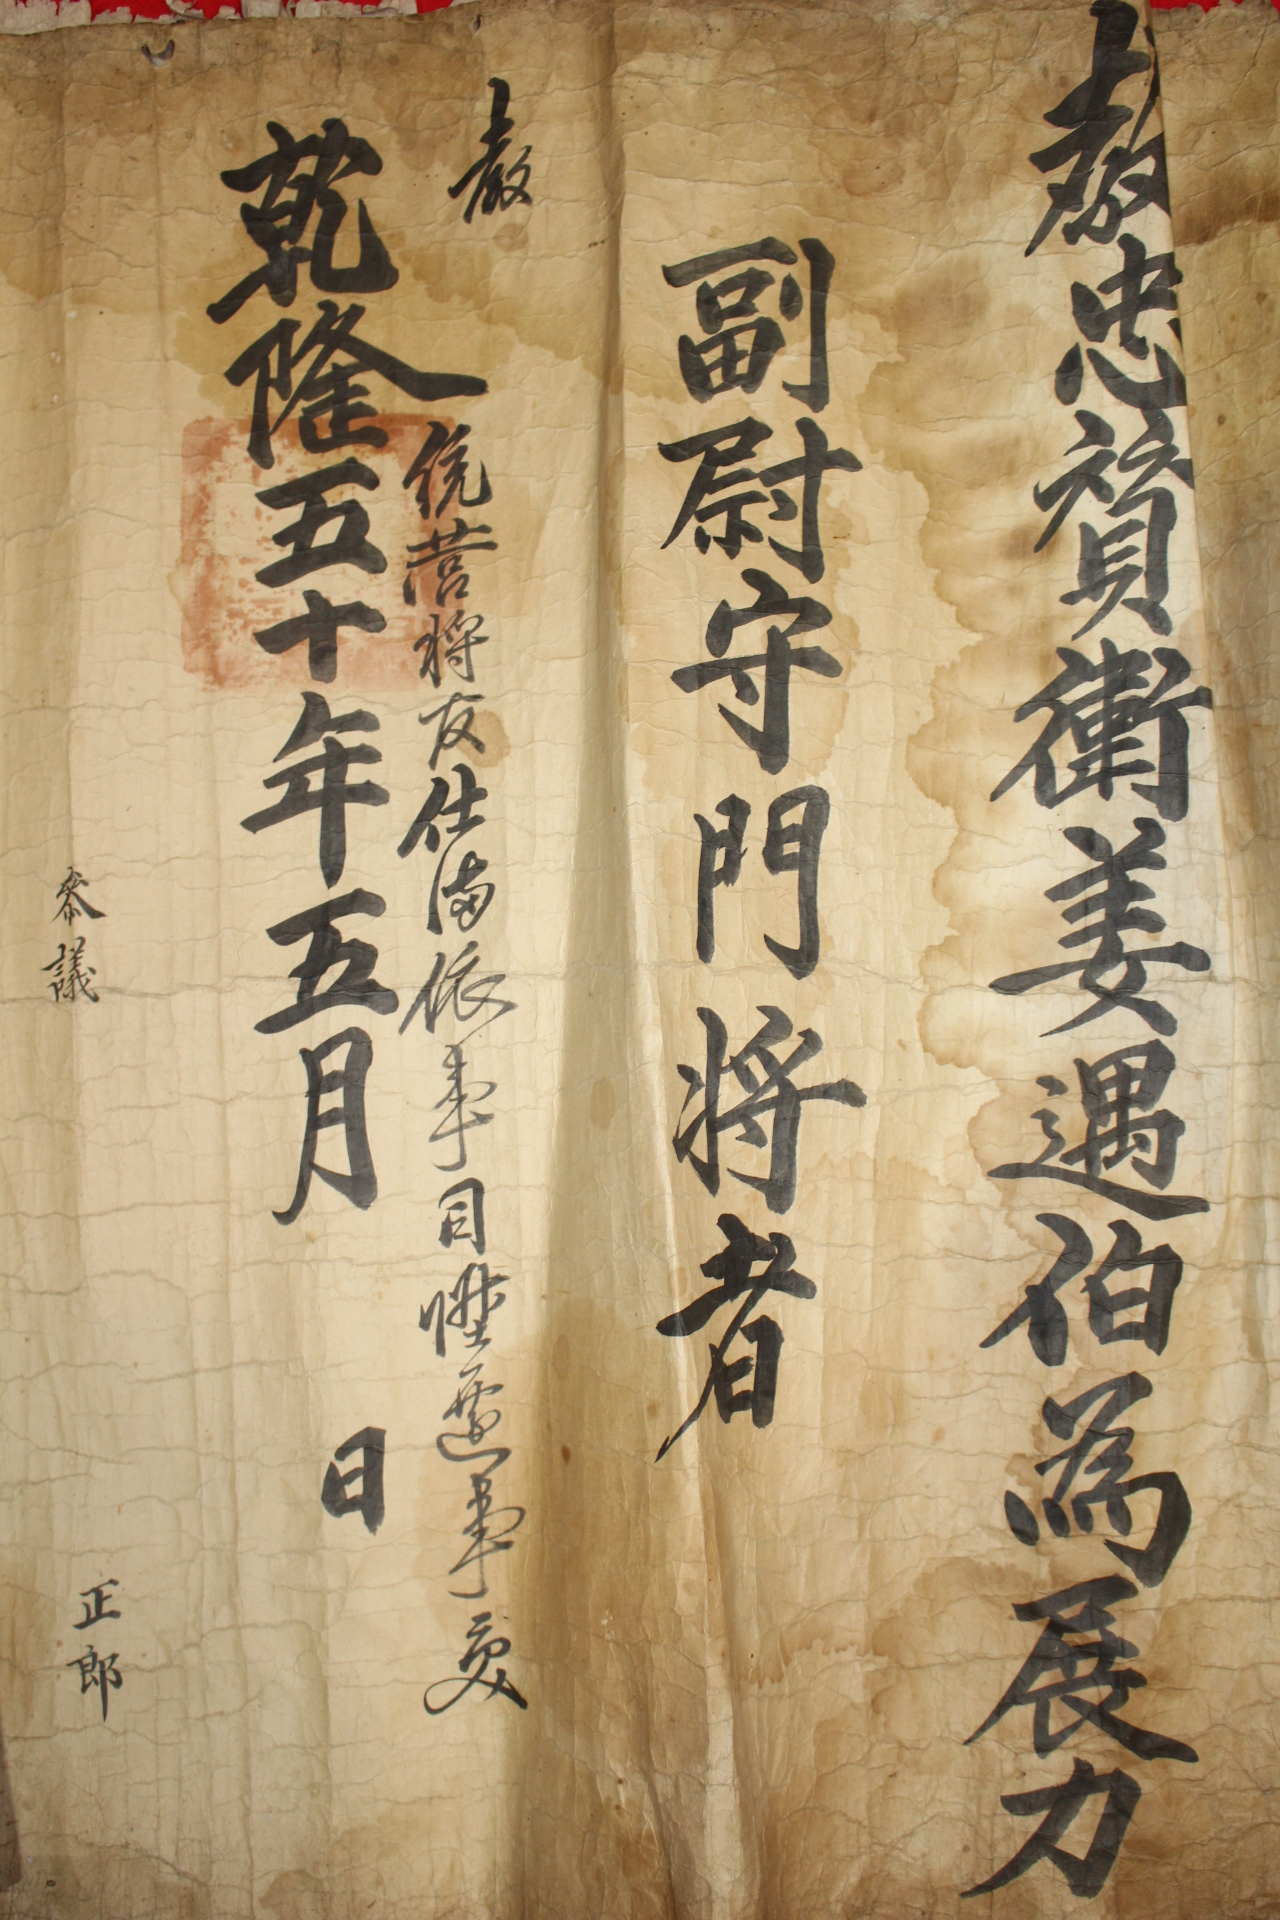 敎忠贊衛姜遇伯爲展力
副尉守門將者
敎
統營將仕滿依事目陞遷事受
乾隆五十年五月 日
叅議 正郎